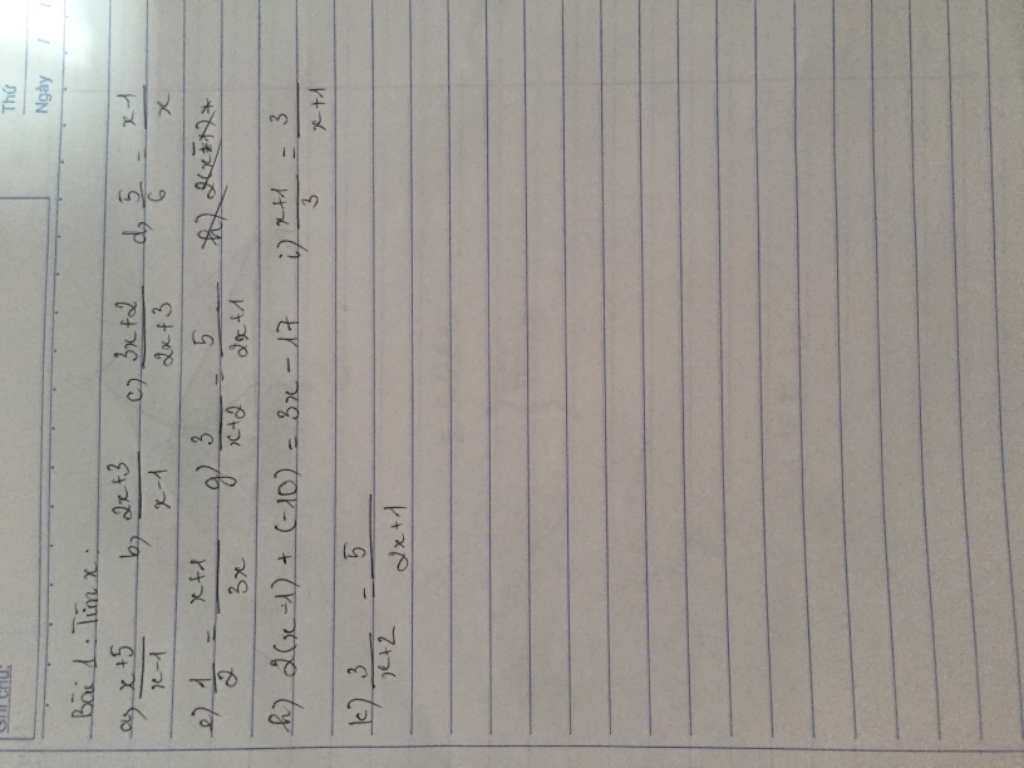 Thứ
Ngày / /
Bài 1: Tìm x.
a, x+5/x-1 b, 2x+3/x-1 c) 3x+2/2x+3 d, 5/6 = x-1/x
e) 1/2 = x+1/3x g) 3/x+2 = 5/2x+1
h) 2(x-1) + (-10) = 3x - 17 i) x+1/3 = 3/x+1
k) 3/x+2 = 5/2x+1